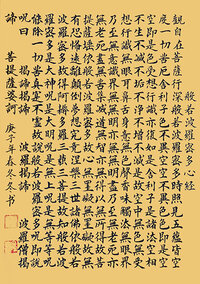 般若波羅蜜多心經
觀自在菩薩行深般若波羅蜜多時照見五蘊皆空
度一切苦厄舍利子色不異空空不異色色即是空
空即是色受想行識亦復如是舍利子是諸法空相
不生不滅不垢不淨不增不減是故空中無色無受
想行識無眼耳鼻舌身意無色聲香味觸法無眼界
乃至無意識界無無明亦無無明盡乃至無老死亦
無老死盡無苦集滅道無智亦無得以無所得故菩
提薩埵依般若波羅蜜多故心無罣礙無罣礙故無
有恐怖遠離顛倒夢想究竟涅槃三世諸佛依般若
波羅蜜多故得阿耨多羅三藐三菩提故知般若波
羅蜜多是大神呪是大明呪是無上呪是無等等呪
能除一切苦真實不虛故說般若波羅蜜多呪即說
呪曰 揭諦揭諦 波羅揭諦 波羅僧揭
諦 菩提薩婆訶 庚子年春冬冬书